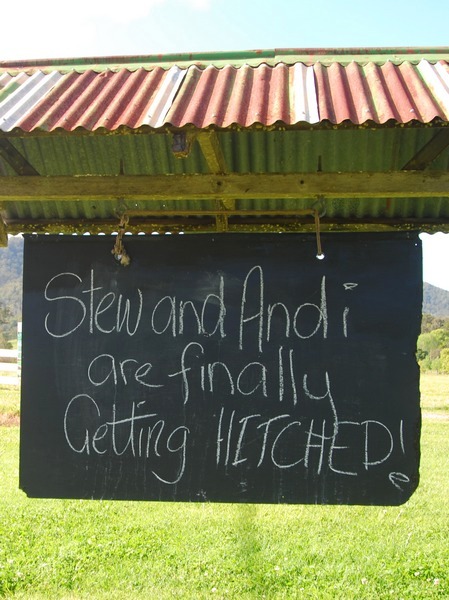 Stew and Andi
are finally
Getting HITCHED!